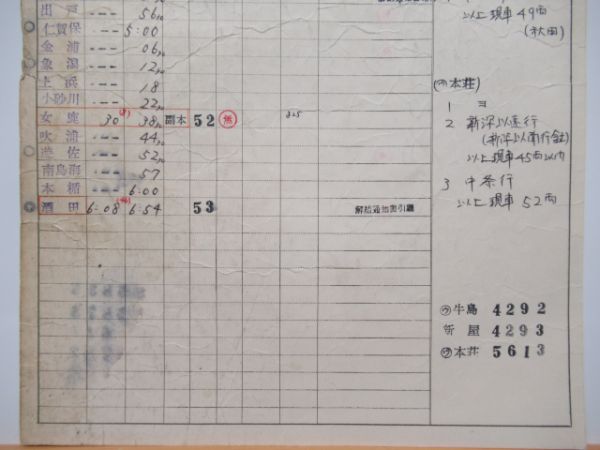 出戸 --- 56
仁賀保 --- 5:00
金浦 --- 06
象潟 --- 12
上浜 --- 18
小砂川 --- 22
女鹿 30 38 副本 52 無 825
吹浦 --- 44
遊佐 --- 52
南鳥海 --- 57
本楯 --- 6:00
酒田 6-08 6:54 53 解結通知書引継
以上現車 49両
(秋田)
本荘)
1 ヨ
2 新深以遠行
(新深以南行含む)
以上現車45両以内
3 中条行
以上現車 52両
ウ 牛島 4292
新屋 4293
ウ 本荘 5613